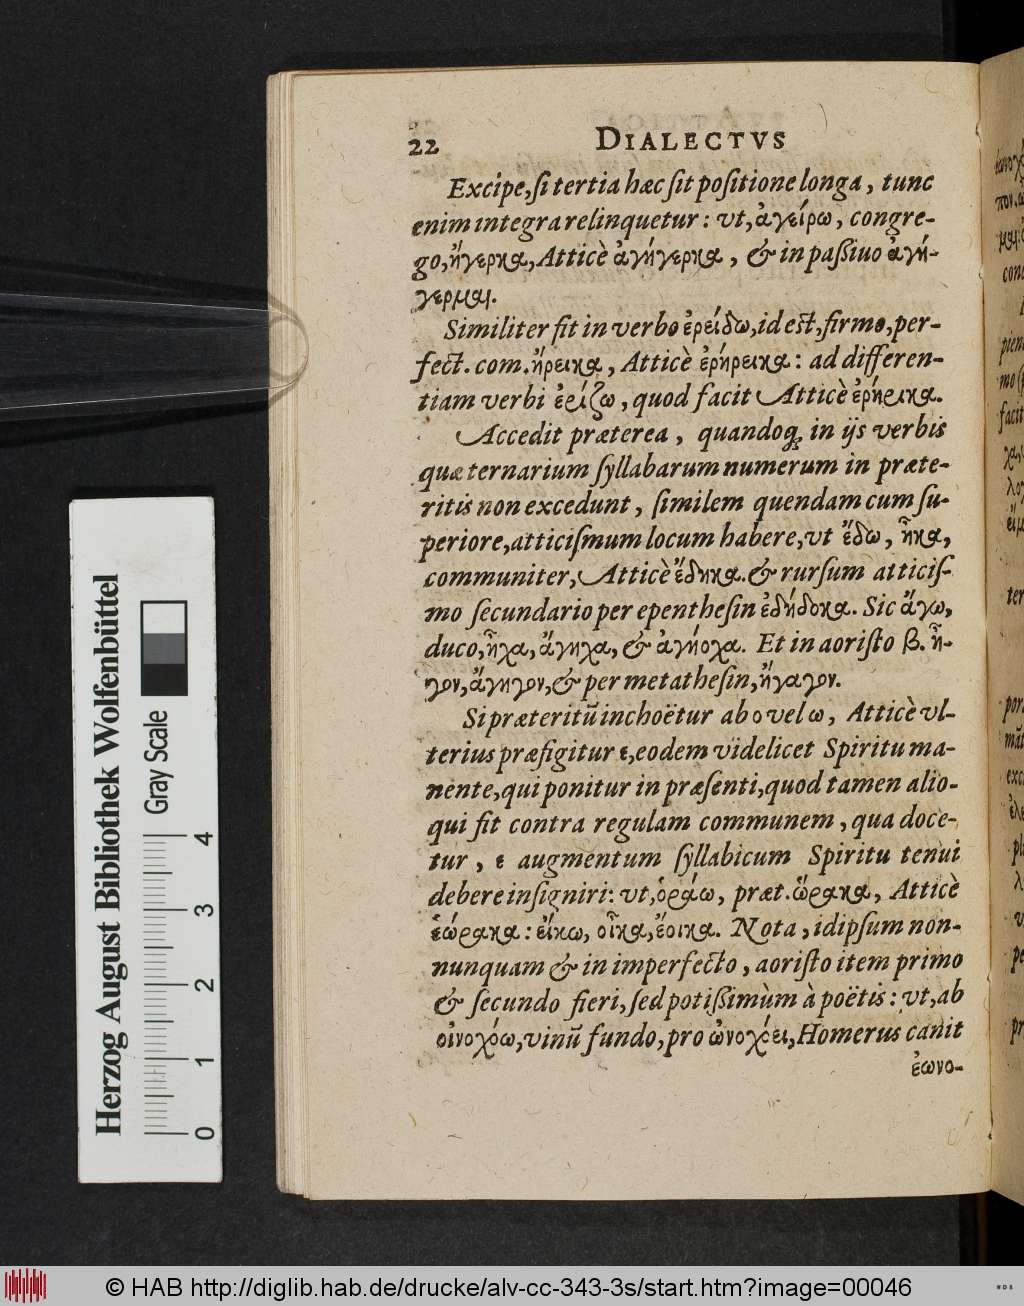 22 DIALECTVS
Excipe, si tertia hæc sit positione longa, tunc
enim integra relinquetur: vt, ἀγείρω, congre-
go, ἤγερκα, Atticè ἀγήγερκα, & in passiuo ἀγή-
γερμαι.
Similiter fit in verbo ἐρείδω, id est, firmo, per-
fect. com. ἤρεικα, Atticè ἐρήρεικα: ad differen-
tiam verbi ἐρίζω, quod facit Atticè ἐρήρικα.
Accedit præterea, quandoq; in ijs verbis
quæ ternarium syllabarum numerum in præte-
ritis non excedunt, similem quendam cum su-
periore, atticismum locum habere, vt ἔδω, ἦκα,
communiter, Atticè ἔδηκα. & rursum atticis-
mo secundario per epenthesin ἐδήδοκα. Sic ἄγω,
duco, ἦχα, ἄγηχα, & ἀγήοχα. Et in aoristo β. ἦ-
γον, ἄγηγον, & per metathesin, ἤγαγον.
Si præteritũ inchoëtur ab ο vel ω, Atticè vl-
terius præfigitur ε, eodem videlicet Spiritu ma-
nente, qui ponitur in præsenti, quod tamen alio-
qui fit contra regulam communem, qua doce-
tur, ε augmentum syllabicum Spiritu tenui
debere insigniri: vt, ὁράω, præt. ὥρακα, Atticè
ἑώρακα: εἴκω, οἶκα, ἔοικα. Nota, idipsum non-
nunquam & in imperfecto, aoristo item primo
& secundo fieri, sed potissimùm à poëtis: vt, ab
οἰνοχόω, vinũ fundo, pro ᾠνοχόει, Homerus canit
ἐωνο-
Herzog August Bibliothek Wolfenbüttel
Gray Scale
0 1 2 3 4
© HAB http://diglib.hab.de/drucke/alv-cc-343-3s/start.htm?image=00046